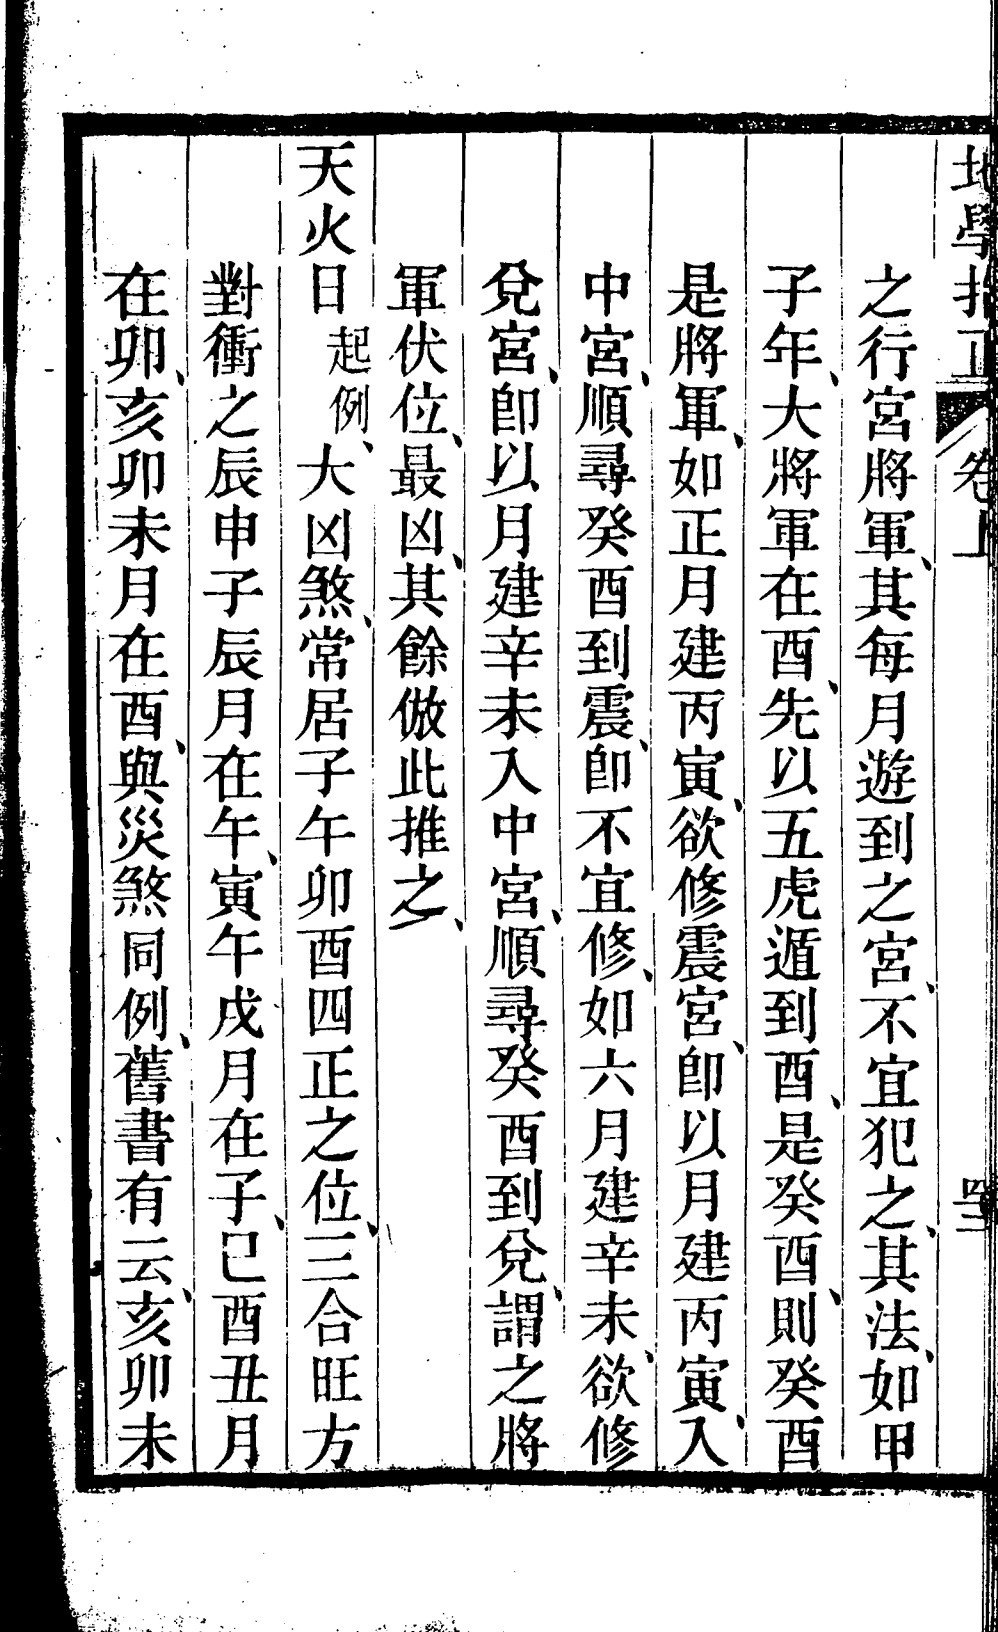 地學指正 卷上 四三
之行宮將軍、其每月遊到之宮、不宜犯之、其法、如甲
子年、大將軍在酉、先以五虎遁到酉、是癸酉、則癸酉
是將軍、如正月建丙寅、欲修震宮、卽以月建丙寅、入
中宮、順尋癸酉到震、卽不宜修、如六月建辛未、欲修
兌宮、卽以月建辛未入中宮、順尋癸酉到兌、謂之將
軍伏位、最凶、其餘倣此推之、
天火日起例、大凶煞、常居子午卯酉四正之位、三合旺方
對衝之辰申子辰月在午、寅午戌月在子、巳酉丑月
在卯、亥卯未月在酉、與災煞同例、舊書有云、亥卯未